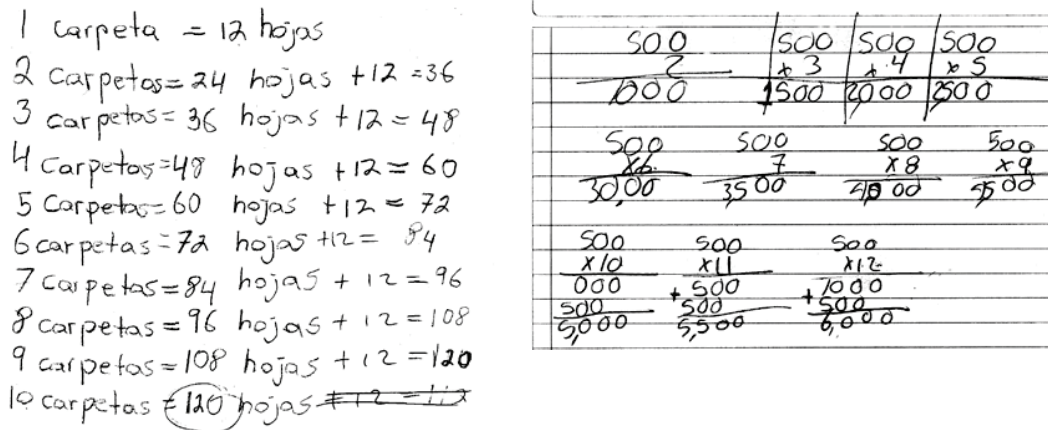 1 carpeta = 12 hojas
2 carpetas = 24 hojas + 12 = 36
3 carpetas = 36 hojas + 12 = 48
4 carpetas = 48 hojas + 12 = 60
5 carpetas = 60 hojas + 12 = 72
6 carpetas = 72 hojas + 12 = 84
7 carpetas = 84 hojas + 12 = 96
8 carpetas = 96 hojas + 12 = 108
9 carpetas = 108 hojas + 12 = 120
10 carpetas = 120 hojas
500 500 500 500
2 x 3 x 4 x 5
1000 1500 2000 2500
500 500 500 500
x6 7 x 8 x 9
30,00 3,500 4000 4500
500 500 500
x10 x11 x12
000 + 500 1000
500 500 + 500
5,000 5,500 6,000